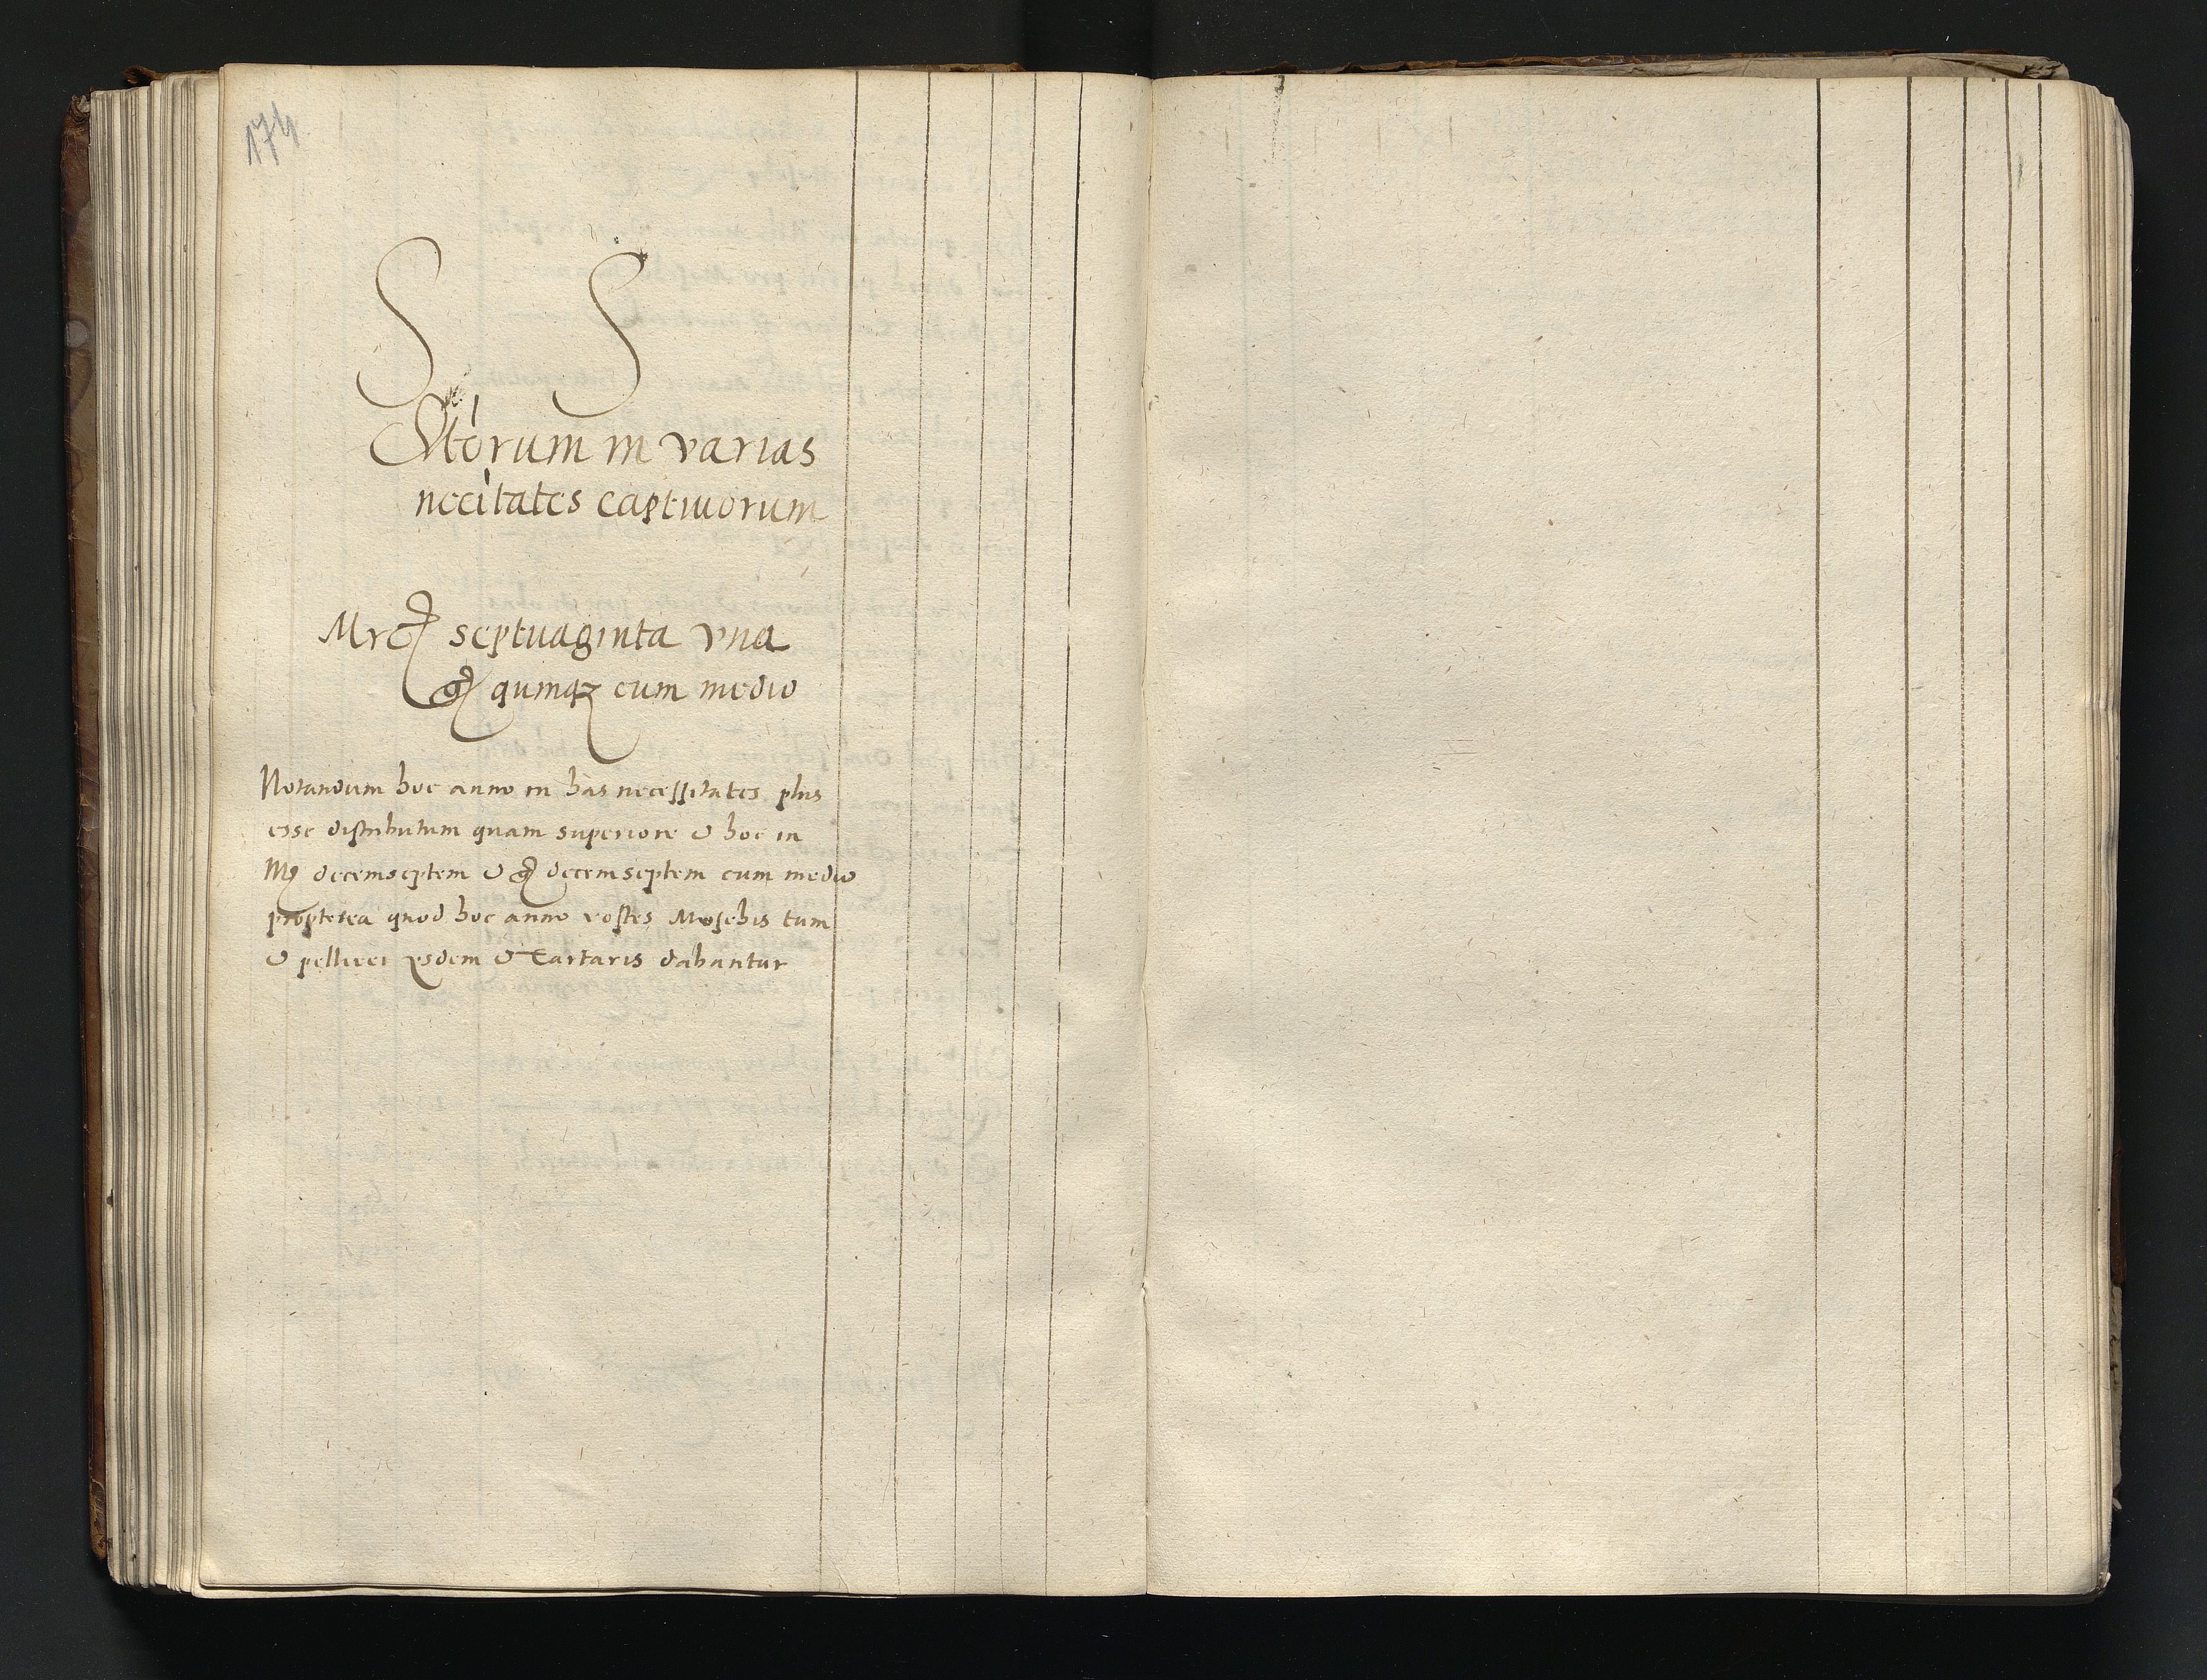 174
S S
Exptorum in varias
necitates captiuorum
Mrc septuaginta vna
gr quinqz cum medio
Notandum hoc anno in has necessitates plus
esse distributum quam superiore & hoc in
Mr decemseptem & gr decemseptem cum medio
propterea quod hoc anno vestes Moschis tum
& pellicei ysdem & Tartaris dabantur